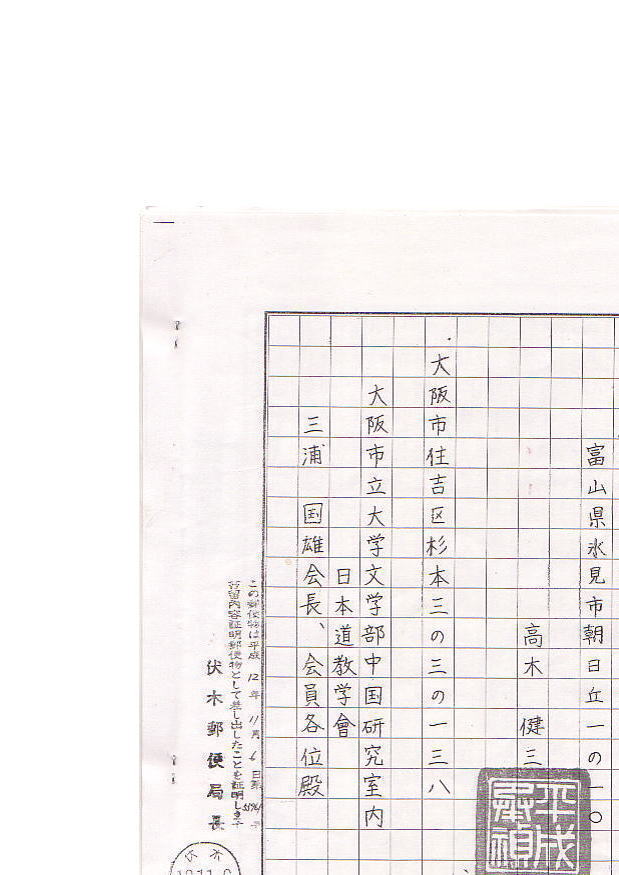 富山県氷見市朝日丘一の一〇
高木 健三
大阪市住吉区杉本三の三の一三八
大阪市立大学文学部中国研究室内
日本道教学會
三浦 国雄会長、会員各位殿
この郵便物は平成12年11月6日第
書留内容証明郵便物として差し出したことを証明します
伏木郵便局長